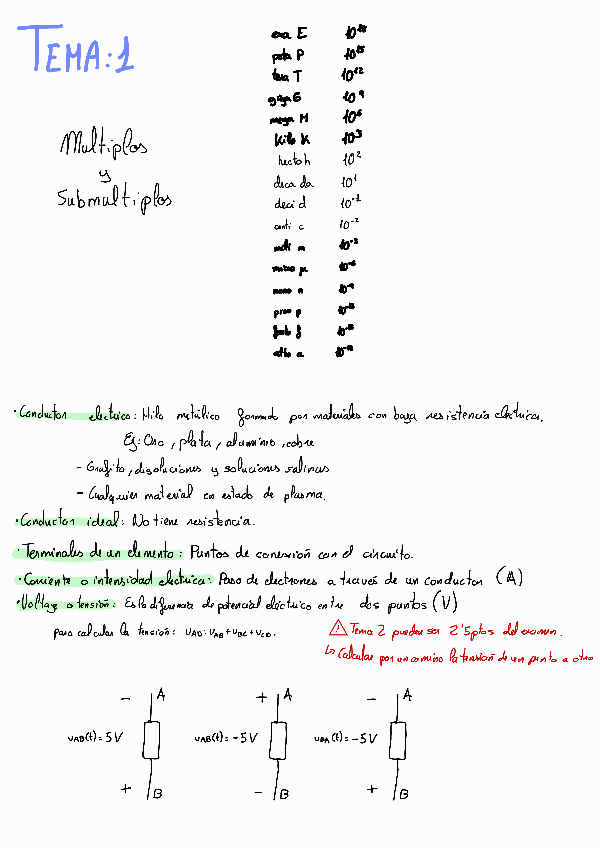 TEMA:1
Multiplos
y
Submultiplos
exa E 10¹⁸
peta P 10¹⁵
tera T 10¹²
giga G 10⁹
mega M 10⁶
Kilo K 10³
hecto h 10²
deca da 10¹
deci d 10⁻¹
centi c 10⁻²
mili m 10⁻³
micro µ 10⁻⁶
nano n 10⁻⁹
pico p
femto f
atto a
· Conductor electrico: Hilo metálico formado por materiales con baja resistencia eléctrica.
Ej: Oro, plata, aluminio, cobre
- Grafito, disoluciones y soluciones salinas
- Cualquier material en estado de plasma.
· Conductor ideal: No tiene resistencia.
· Terminales de un elemento: Puntos de conexión con el circuito.
· Corriente o intensidad electrica: Paso de electrones a través de un conductor (A)
· Voltaje o tensión: Es la diferencia de potencial eléctrico entre dos puntos (V)
para calcular la tensión: uAD: uAB + uBC + uCD.
⚠ Tema 2 puede ser 2'5 ptos del examen.
↳ Calcular por un camino la tensión de un punto a otro
- A + A - A
uAB(t) = 5V uAB(t) = -5V uBA(t) = -5V
+ B - B + B